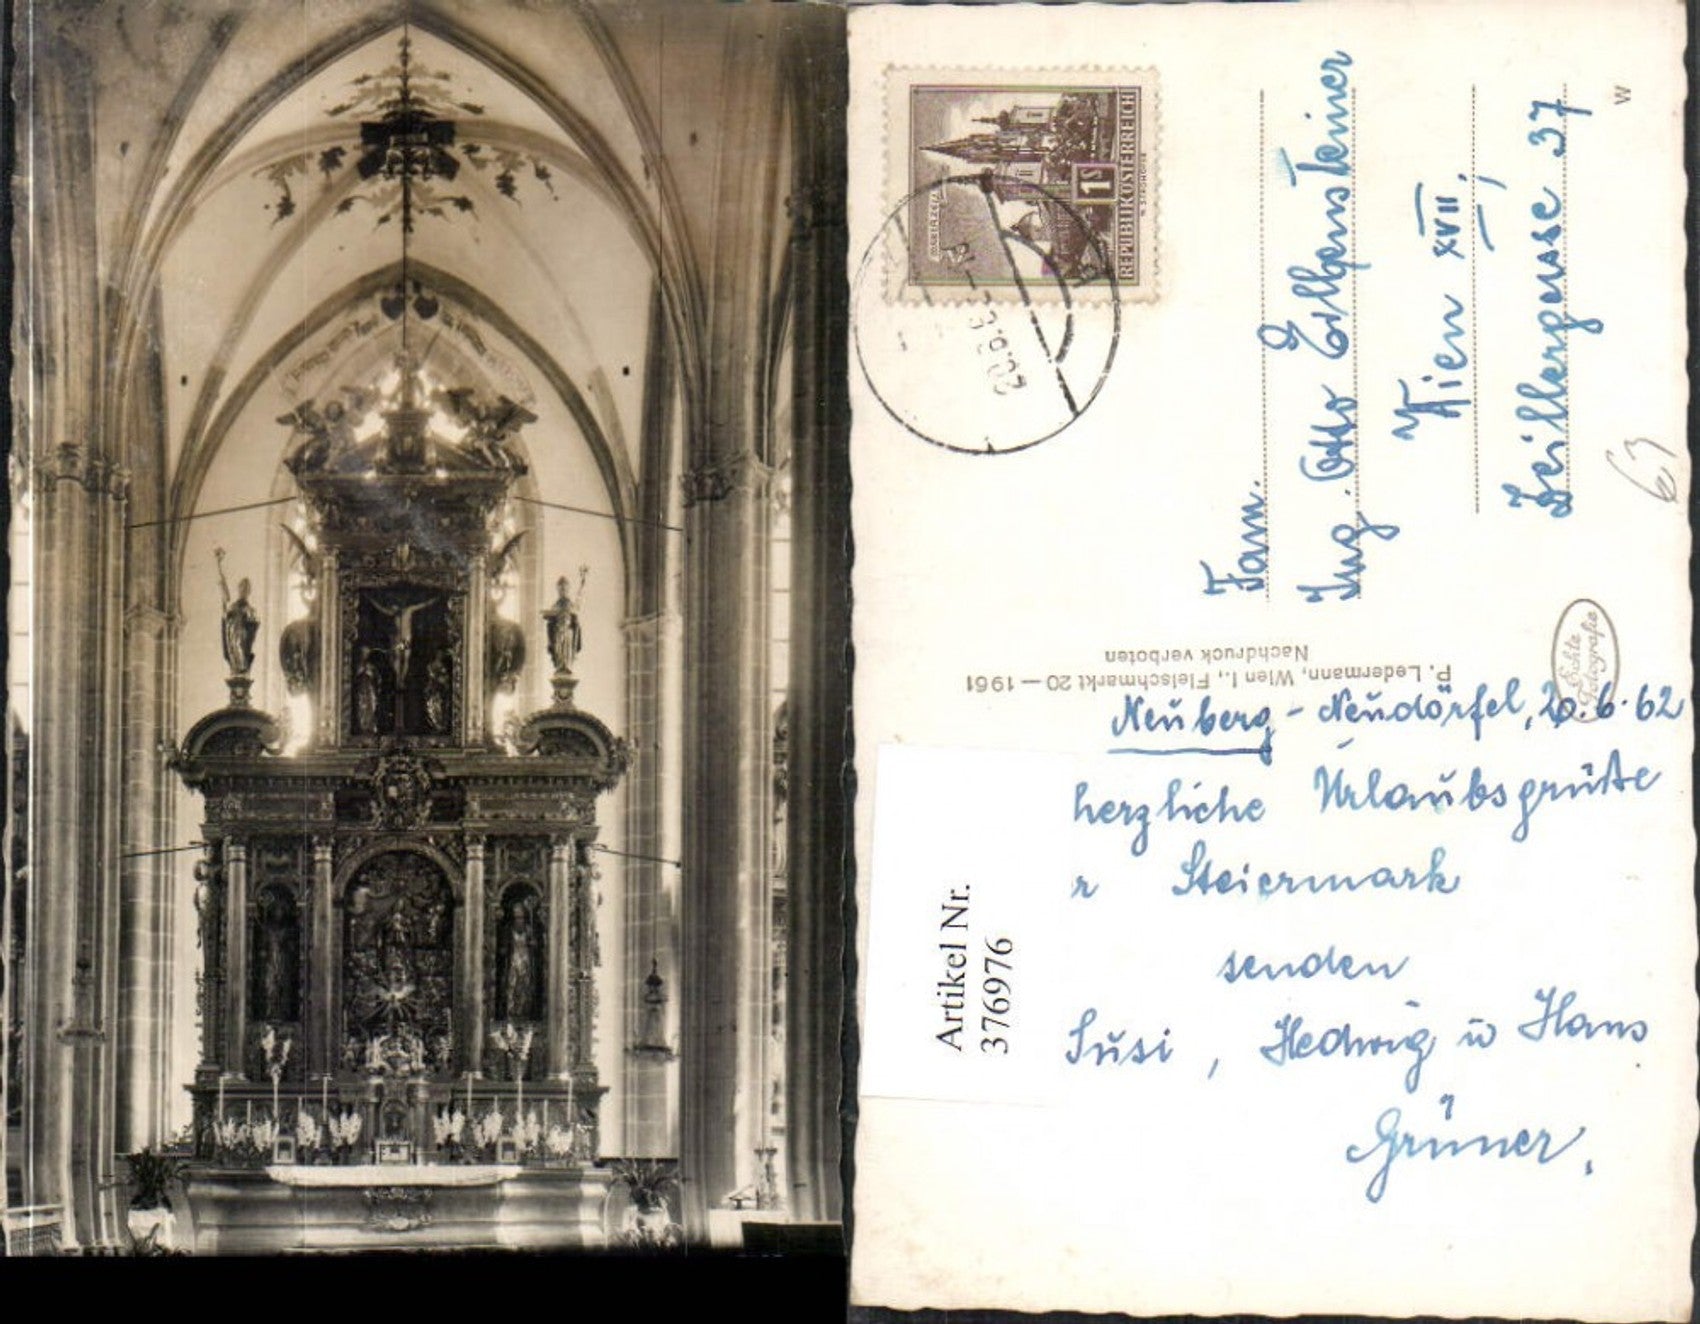 REPUBLIK ÖSTERREICH
1S
MARIAZELL
20.6.62
Fam.
Ing. Otto Eilbensteiner
Wien XVII.
37
W
63
P. Ledermann, Wien I., Fleischmarkt 20 — 1961
Nachdruck verboten
Echte
Fotografie
Neuberg - Neudörfel, 20.6.62
herzliche Urlaubsgrüße
Steiermark
senden
Susi, Hedwig u Hans
Grüner.
Artikel Nr.
3769976